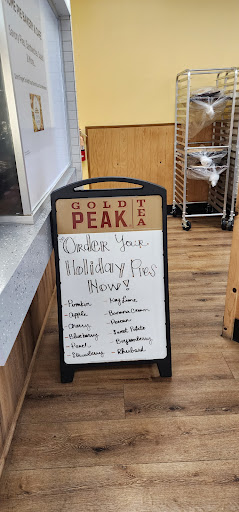 GOLD
PEAK
TEA
Order Your
Holiday Pies
Now!
- Pumpkin
- Apple
- Cherry
- Blueberry
- Peach
- Strawberry
- Key Lime
- Banana Cream
- Pecan
- Sweet Potato
- Boysenberry
- Rhubarb